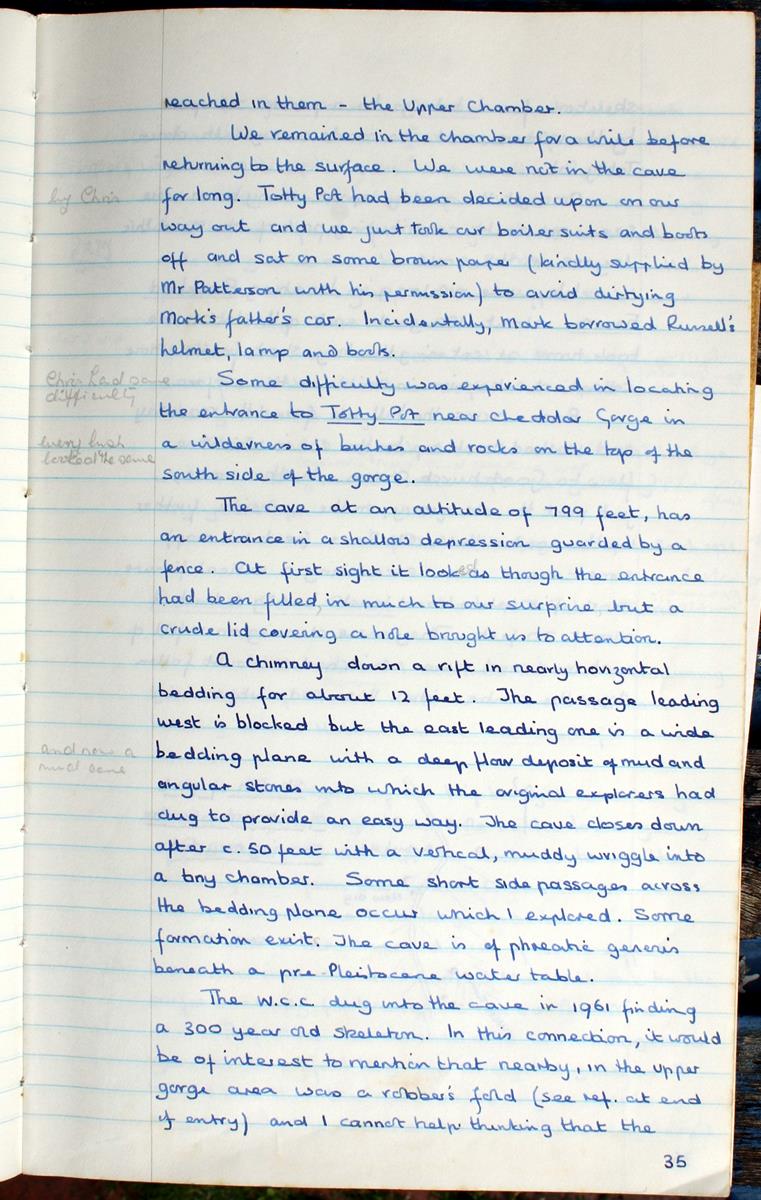 reached in them - the Upper Chamber.
We remained in the chamber for a while before
returning to the surface. We were not in the cave
by Chris
for long. Totty Pot had been decided upon on our
way out and we just took our boiler suits and boots
off and sat on some brown paper (kindly supplied by
Mr Patterson with his permission) to avoid dirtying
Mark's father's car. Incidentally, Mark borrowed Russell's
helmet, lamp and boots.
Chris had some
difficulty
Some difficulty was experienced in locating
the entrance to Totty Pot near Cheddar Gorge in
every bush
looked the same
a wilderness of bushes and rocks on the top of the
south side of the gorge.
The cave at an altitude of 799 feet, has
an entrance in a shallow depression guarded by a
fence. At first sight it looked as though the entrance
had been filled in much to our surprise, but a
crude lid covering a hole brought us to attention.
A chimney down a rift in nearly horizontal
bedding for about 12 feet. The passage leading
west is blocked but the east leading one is a wide
and now a
bedding plane with a deep flow deposit of mud and
angular stones into which the original explorers had
dug to provide an easy way. The cave closes down
after c. 50 feet with a vertical, muddy wriggle into
a tiny chamber. Some short side passages across
the bedding plane occur which I explored. Some
formation exist. The cave is of phreatic genesis
beneath a pre-Pleistocene water table.
The W.C.C dug into the cave in 1961 finding
a 300 year old skeleton. In this connection, it would
be of interest to mention that nearby, in the upper
gorge area was a robber's fold (see ref. at end
of entry) and I cannot help thinking that the
35